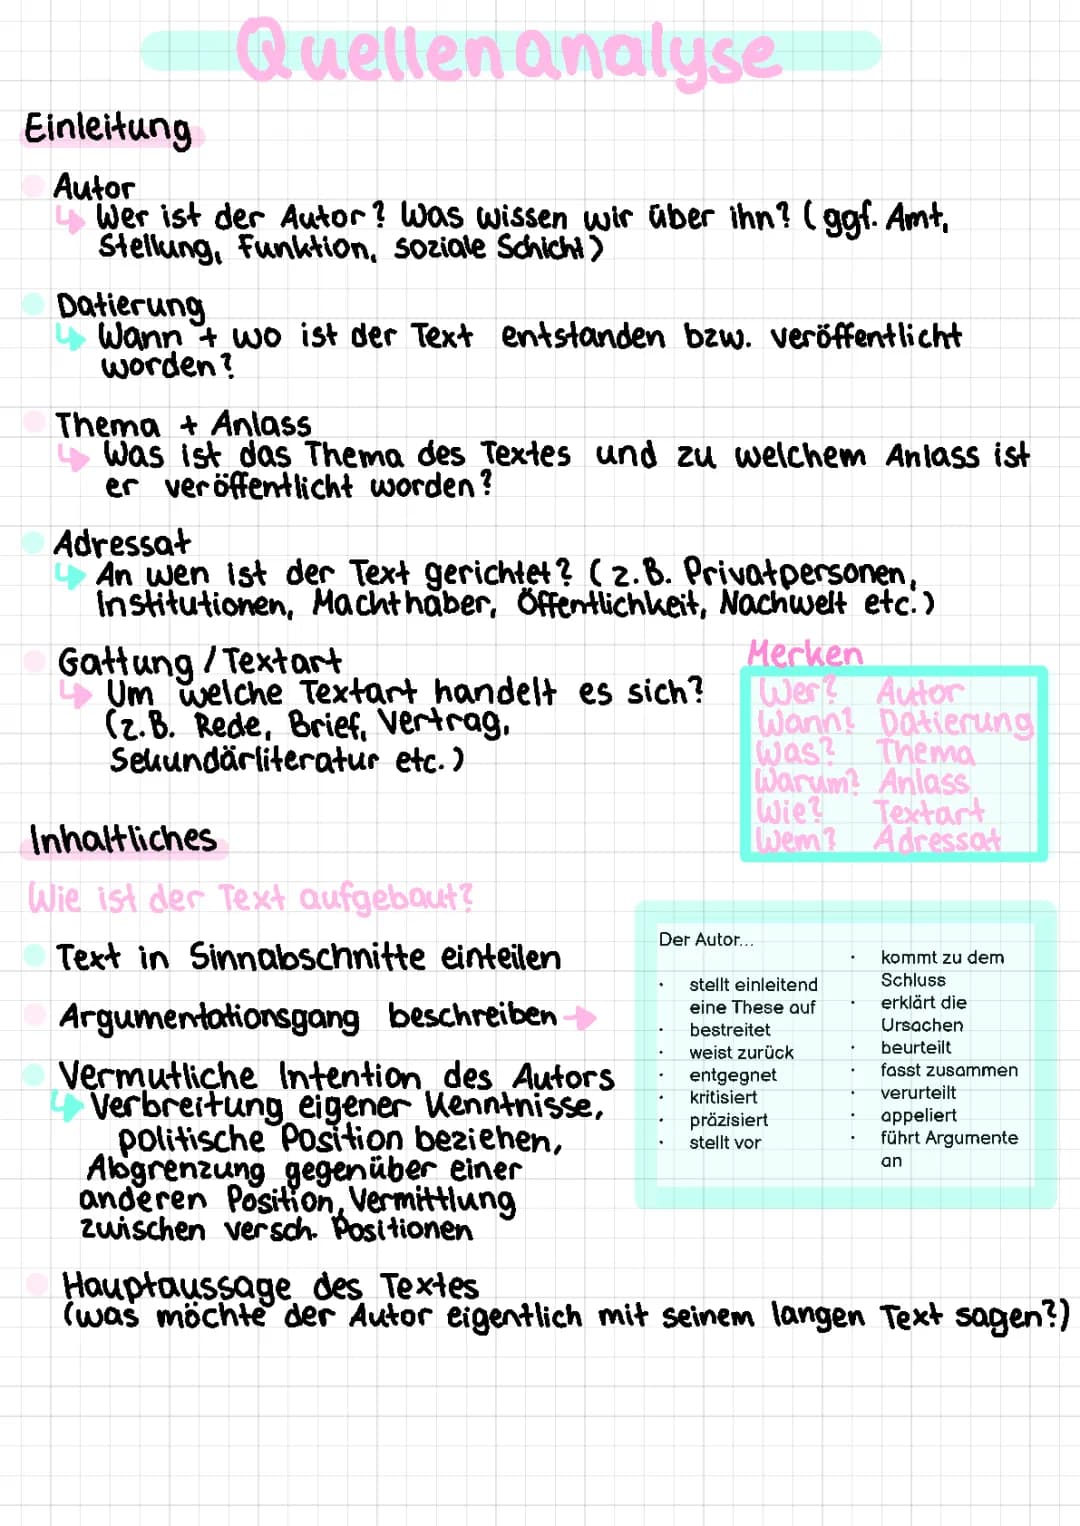 Quellenanalyse
Einleitung
Autor
Wer ist der Autor? Was wissen wir über ihn? (ggf. Amt,
Stellung, Funktion, soziale Schicht)
Datierung
Wann + wo ist der Text entstanden bzw. veröffentlicht
worden?
Thema + Anlass
Was ist das Thema des Textes und zu welchem Anlass ist
er veröffentlicht worden?
Adressat
An wen ist der Text gerichtet? (z.B. Privatpersonen,
Institutionen, Machthaber, Öffentlichkeit, Nachwelt etc.)
Gattung / Textart
Um welche Textart handelt es sich?
(z.B. Rede, Brief, Vertrag,
Sekundärliteratur etc.)
Merken
Wer? Autor
Wann? Datierung
Was? Thema
Warum? Anlass
Wie? Textart
Wem? Adressat
Inhaltliches
Wie ist der Text aufgebaut?
Text in Sinnabschnitte einteilen
Argumentationsgang beschreiben
Vermutliche Intention des Autors
Verbreitung eigener Kenntnisse,
politische Position beziehen,
Abgrenzung gegenüber einer
anderen Position, Vermittlung
zwischen versch. Positionen
Hauptaussage des Textes
(was möchte der Autor eigentlich mit seinem langen Text sagen?)
Der Autor...
• stellt einleitend
eine These auf
• bestreitet
• weist zurück
• entgegnet
• kritisiert
• präzisiert
• stellt vor
• kommt zu dem
Schluss
• erklärt die
Ursachen
• beurteilt
• fasst zusammen
• verurteilt
• appeliert
• führt Argumente
an